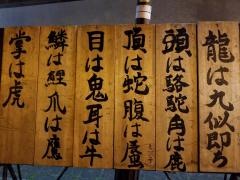 龍は九似即ち
頭は駱駝角は鹿
頂は蛇腹は蜃
目は鬼耳は牛
鱗は鯉爪は鷹
掌は虎